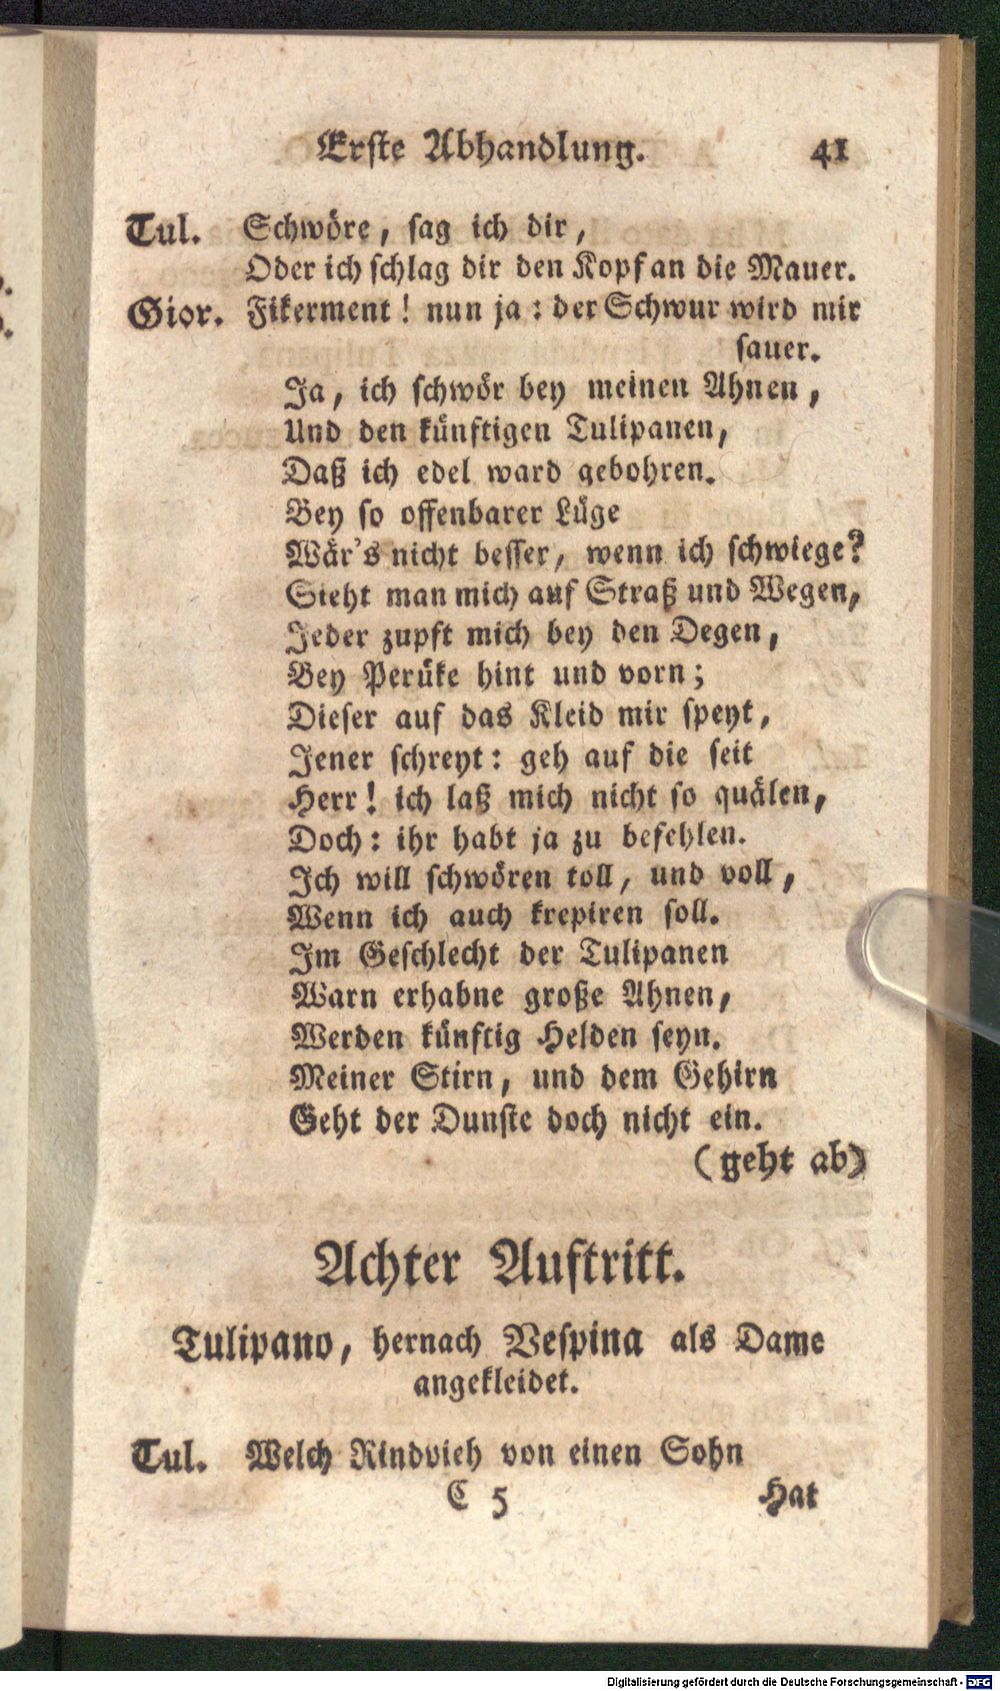 Erste Abhandlung. 41
Tul. Schwöre, sag ich dir,
Oder ich schlag dir den Kopf an die Mauer.
Gior. Fikerment! nun ja: der Schwur wird mir
sauer.
Ja, ich schwör bey meinen Ahnen,
Und den künftigen Tulipanen,
Daß ich edel ward gebohren.
Bey so offenbarer Lüge
Wär's nicht besser, wenn ich schwiege?
Sieht man mich auf Straß und Wegen,
Jeder zupft mich bey den Degen,
Bey Perüke hint und vorn;
Dieser auf das Kleid mir speyt,
Jener schreyt: geh auf die seit
Herr! ich laß mich nicht so quälen,
Doch: ihr habt ja zu befehlen.
Ich will schwören toll, und voll,
Wenn ich auch krepiren soll.
Im Geschlecht der Tulipanen
Warn erhabne große Ahnen,
Werden künftig Helden seyn.
Meiner Stirn, und dem Gehirn
Geht der Dunste doch nicht ein.
(geht ab)
Achter Auftritt.
Tulipano, hernach Vespina als Dame
angekleidet.
Tul. Welch Rindvieh von einen Sohn
C 5 Hat
Digitalisierung gefördert durch die Deutsche Forschungsgemeinschaft - DFG